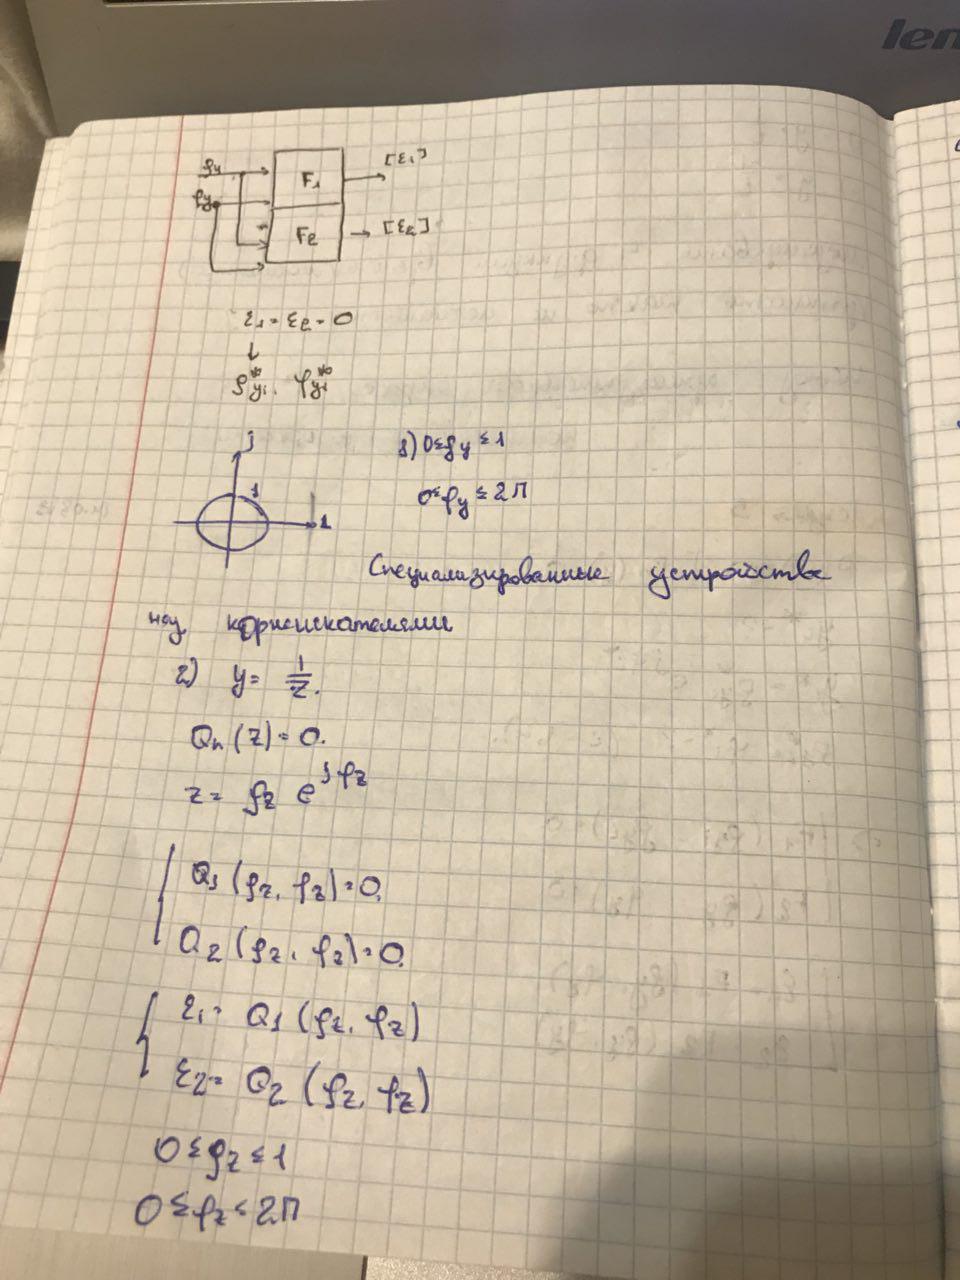 len
ρy
φy
F1
[ε1]
F2
[ε2]
ε1 = ε2 = 0
↓
ρ*yi, φ*yi
j
1
1
1) 0 ≤ ρy ≤ 1
0 ≤ φy ≤ 2π
Специализированные устройства
наз. корнеискателями
2) y = 1/z.
Qn (z) = 0.
z = ρz e^jφz
Q1 (ρz, φz) = 0.
Q2 (ρz, φz) = 0.
ε1 = Q1 (ρz, φz)
ε2 = Q2 (ρz, φz)
0 ≤ ρz ≤ 1
0 ≤ φz ≤ 2π